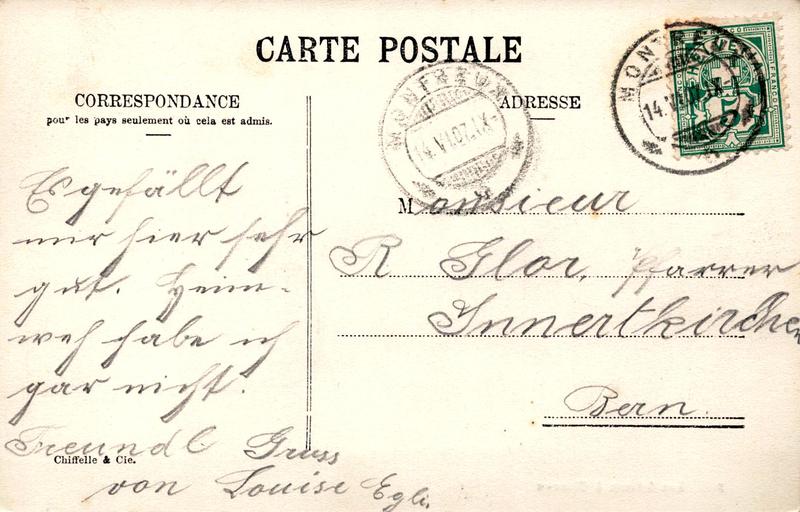 CARTE POSTALE
CORRESPONDANCE
pour les pays seulement où cela est admis.
ADRESSE
MONTREUX
14.VI.07.IX-
MONTREUX
14.VI.07.IX-
FRANCO
Es gefällt
mir hier sehr
gut. Heim-
weh habe ich
gar nicht.
Freundl Gruss
von Louise Egli.
Monsieur
R Glor, Pfarrer
Innertkirchen
Bern.
Chiffelle & Cie.